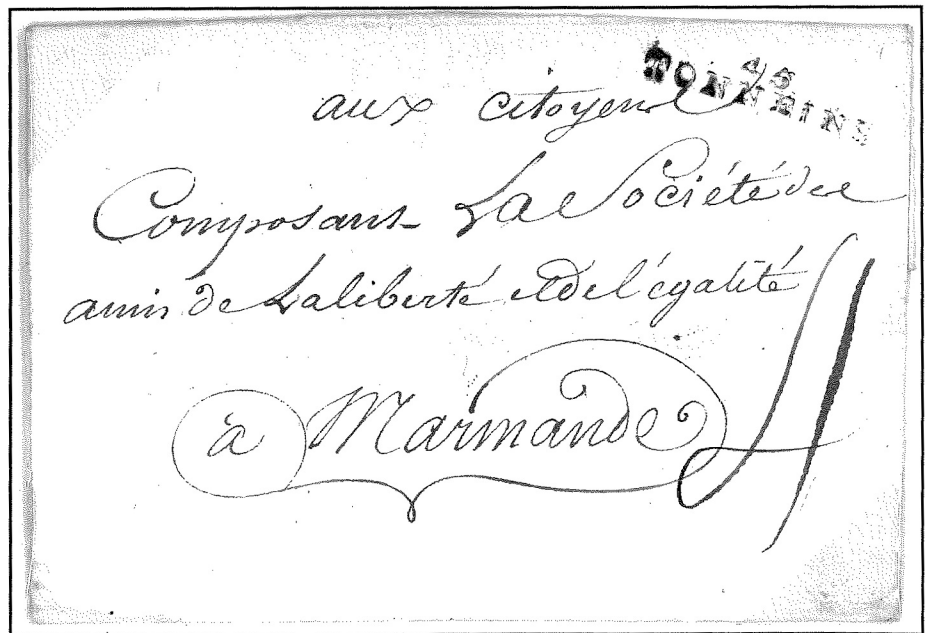 45
TONNEINS
aux citoyens
Composant La Société des
amis de Laliberté et del'égalité
à Marmande
4